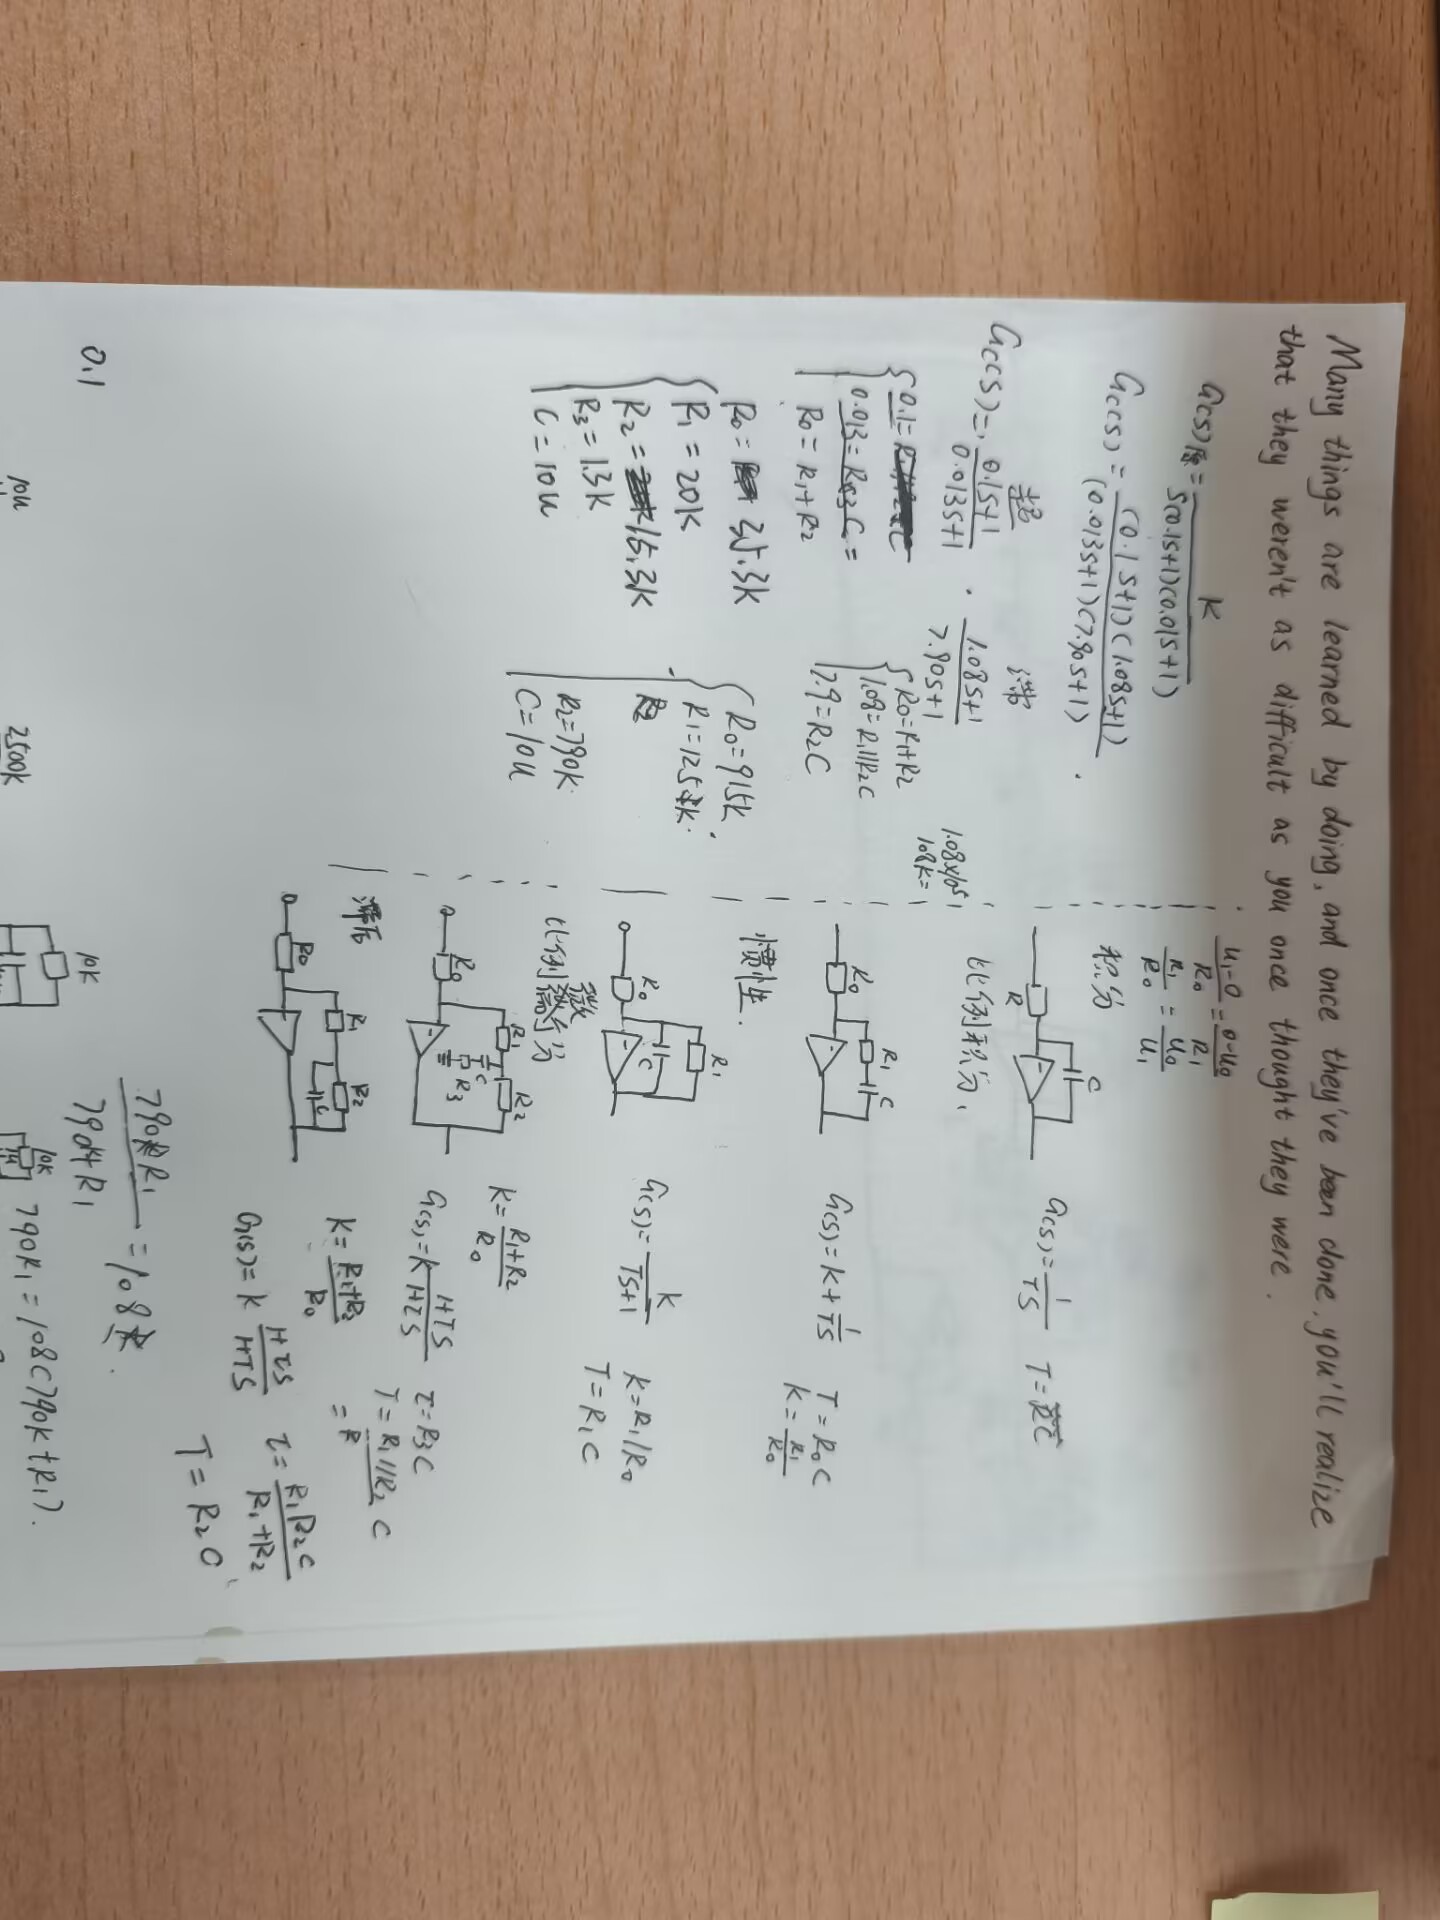 Many things are learned by doing, and once they've been done, you'll realize
that they weren't as difficult as you once thought they were.
G(s)原 = K / S(0.1S+1)(0.01S+1)
Gc(s) = (0.1S+1)(1.08S+1) / (0.013S+1)(7.90S+1)
超 滞
Gc(s) = 0.1S+1 / 0.013S+1 · 1.08S+1 / 7.90S+1
0.1=
0.013=R3C=
R0=R1+R2
R0=R1+R2
1.08=R1//R2C
7.9=R2C
1.08×10⁵
108K=
R0= 35.3K
R1=20K
R2= 15.3K
R3=1.3K
C=10u
R0=915K
R1=125K
R2=790K
C=10u
U1-0 / R0 = 0-U0 / R1
R1 / R0 = U0 / U1
积分
R C
G(s)= 1 / TS T=RC
比例积分
R0 R1 C
G(s)=K+ 1 / TS T=R0C
K= R1 / R0
惯性
R0 R1 C
G(s)= K / TS+1 K=R1/R0
T=R1C
比例微分
R0 R1 C R2 R3
K= R1+R2 / R0
G(s)=K 1+TS / 1+τS τ=R3C
T=R1//R2 C
滞后
R0 R1 R2 C
K= R1+R2 / R0 =
G(s)=K 1+τS / 1+TS τ= R1R2C / R1+R2
T=R2C
790KR1 / 790K+R1 =108K
790R1=108(790K+R1).
0.1
10u
2500K
10K
10K